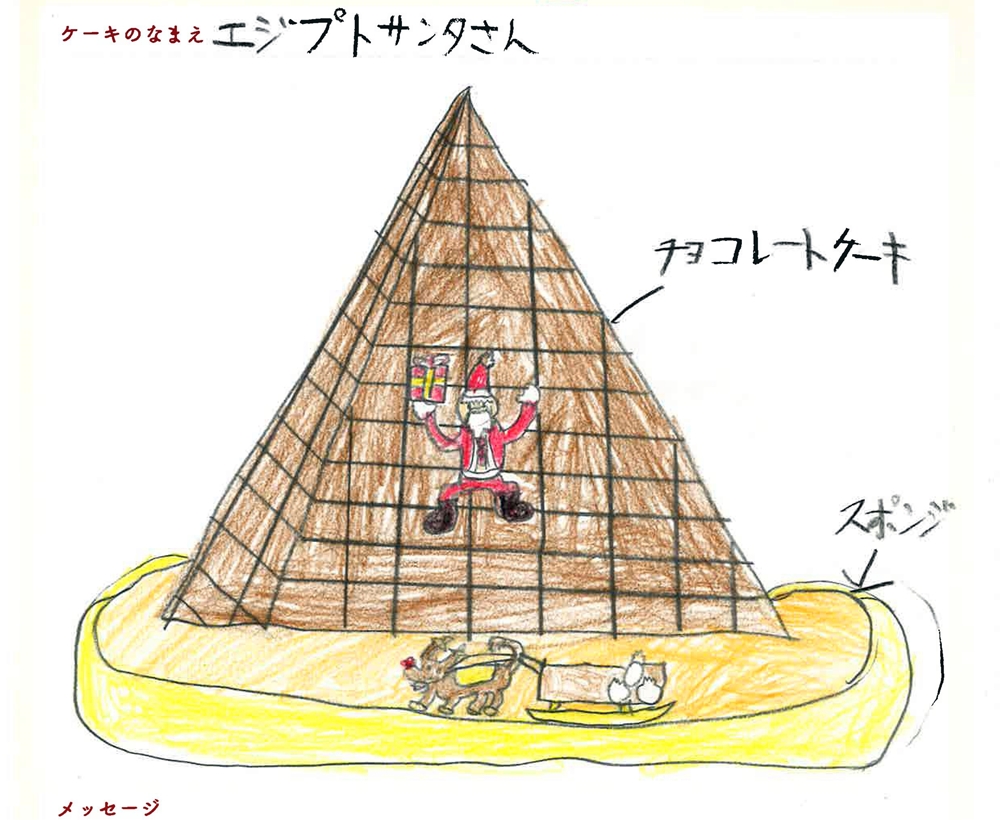 ケーキのなまえ エジプトサンタさん
チョコレートケーキ
スポンジ
メッセージ